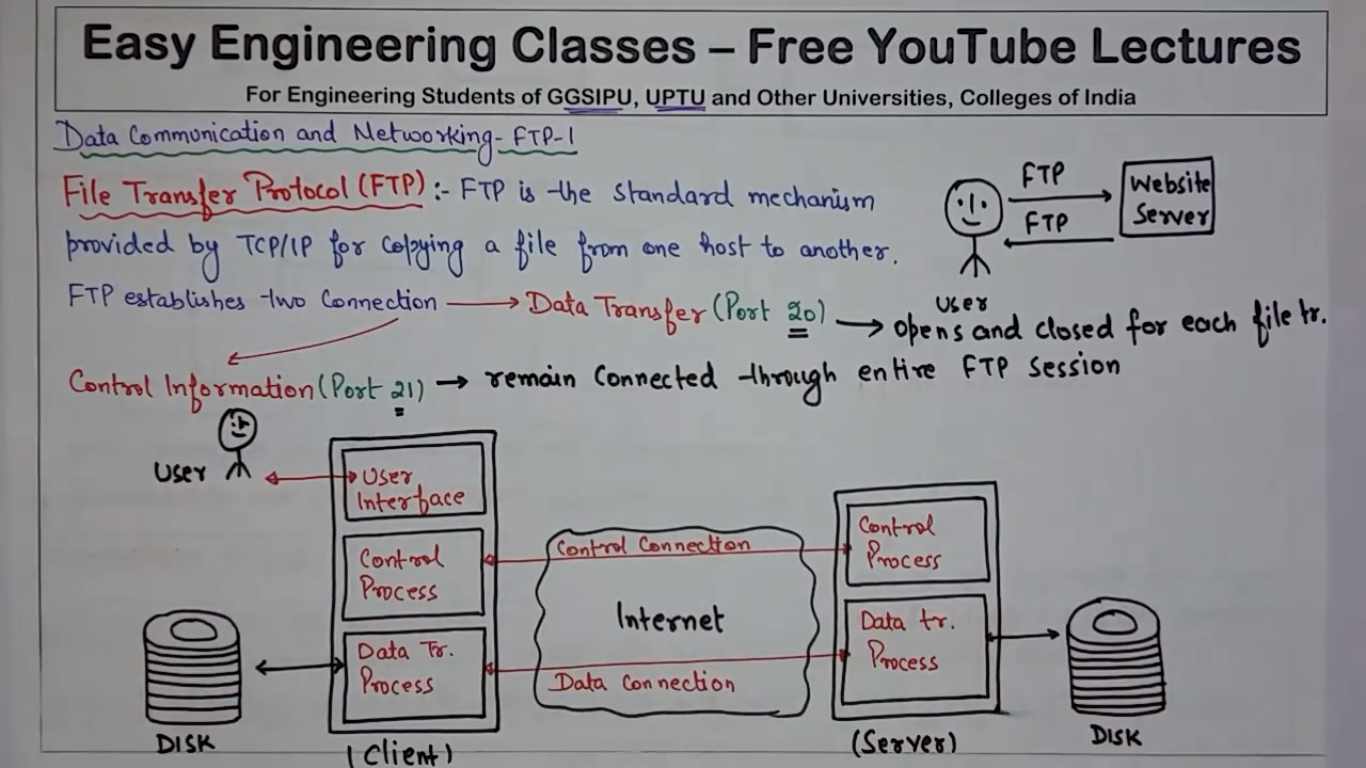 Easy Engineering Classes – Free YouTube Lectures
For Engineering Students of GGSIPU, UPTU and Other Universities, Colleges of India
Data Communication and Networking- FTP-1
File Transfer Protocol (FTP) :- FTP is the standard mechanism
provided by TCP/IP for copying a file from one host to another.
FTP
FTP
Website
Server
User
FTP establishes two Connection → Data Transfer (Port 20) → opens and closed for each file tr.
Control Information (Port 21) → remain connected through entire FTP session
User
User
Interface
Control
Process
Data Tr.
Process
DISK
(Client)
Control Connection
Internet
Data Connection
Control
Process
Data tr.
Process
(Server)
DISK